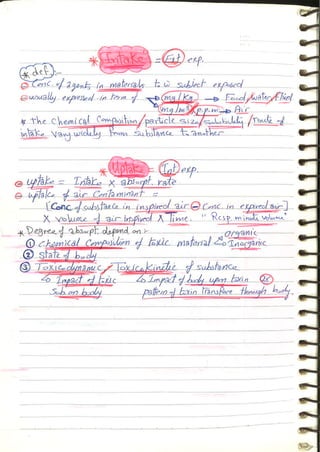 * Intake = Ext exp.
* def :-
Conc. of agents in materials to w subject exposed
usually expressed in term of → mg/kg → Food/water/Fluid
mg/m³/p.p.m → Air
* The Chemical Composition/particle size/solubility/route of
intake vary widely from substance to another
* Uptake = Int exp.
uptake = Intake x absorpt. rate
uptake of air Contaminant =
[Conc. of substance in inspired air ⊖ Conc. in expired air]
X volume of air inspired X Time. " Resp. minute volume"
* Degree of absorpt. depend on :-
organic
① chemical Composition of toxic material Inorganic
② State of body
③ Toxicodynamic / Toxicokinetic of substance
Impact of toxic Impact of body upon toxin
Sub. on body pattern of toxin transfere through body.